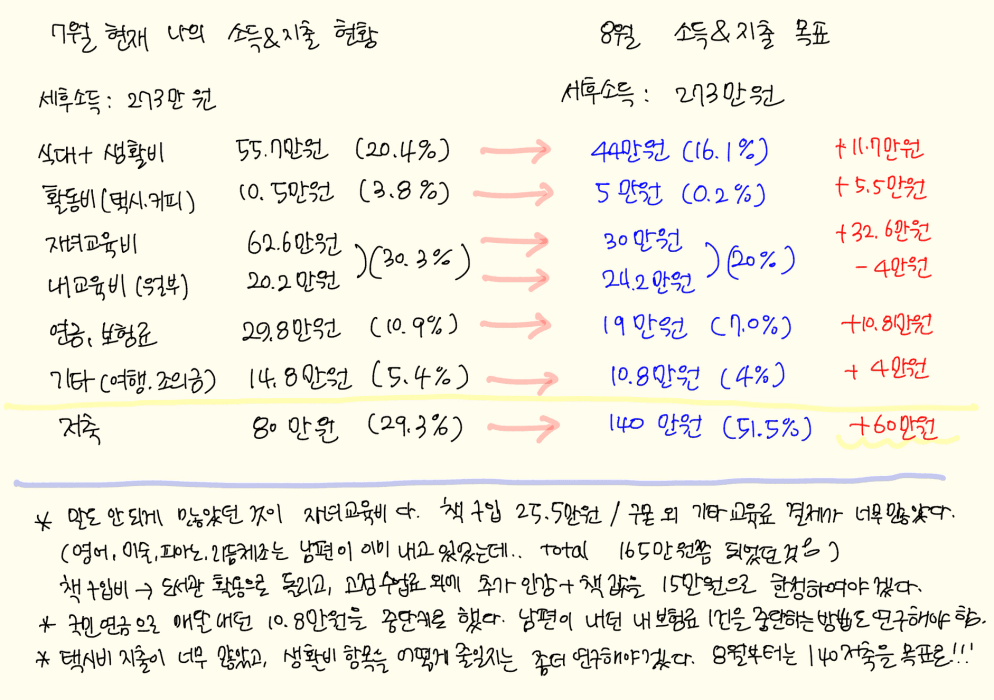 7월 현재 나의 소득&지출 현황
8월 소득&지출 목표
세후소득: 273만원
세후소득: 273만원
식대+ 생활비 55.7만원 (20.4%) → 44만원 (16.1%) +11.7만원
활동비(택시.커피) 10.5만원 (3.8%) → 5만원 (0.2%) +5.5만원
자녀교육비 62.6만원 → 30만원 +32.6만원
)(30.3%) )(20%)
내교육비 (일부) 20.2만원 → 24.2만원 -4만원
연금, 보험료 29.8만원 (10.9%) → 19만원 (7.0%) +10.8만원
기타(여행.조의금) 14.8만원 (5.4%) → 10.8만원 (4%) + 4만원
저축 80만원 (29.3%) → 140만원 (51.5%) +60만원
* 말도 안되게 많았던 것이 자녀교육비다. 책 구입 25.5만원 / 구몬 외 기타교육료 결제가 너무많았다.
(영어, 미술, 피아노, 리듬체조는 남편이 이미 내고 있었는데.. total 165만원쯤 되었던것)
책구입비 → 도서관 활동으로 돌리고, 고정수업료 외에 추가 인강+책값을 15만원으로 한정하여야겠다.
* 국민연금으로 매달 내던 10.8만원을 중단시로 했다. 남편이 내던 내보험료 1건을 중단하는 방법도 연구해야 함.
* 택시비 지출이 너무 많았고, 생활비 항목을 어떻게 줄일지는 좀더 연구해야겠다. 8월부터는 140저축을 목표로!!!